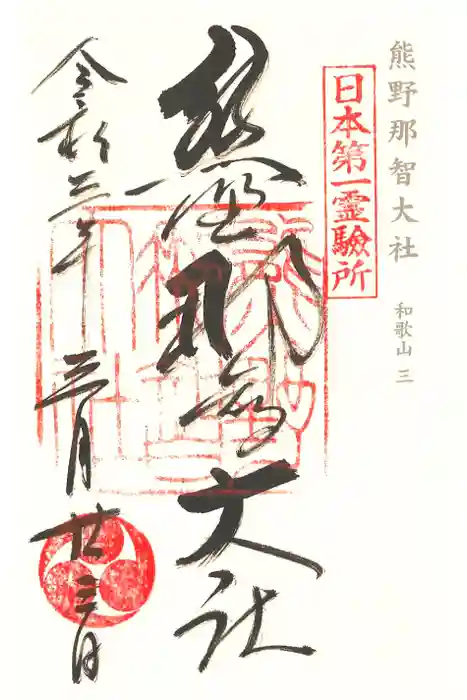 熊野那智大社
和歌山 三
日本第一霊驗所
熊野那智大社
令和三年 三月 廿三日